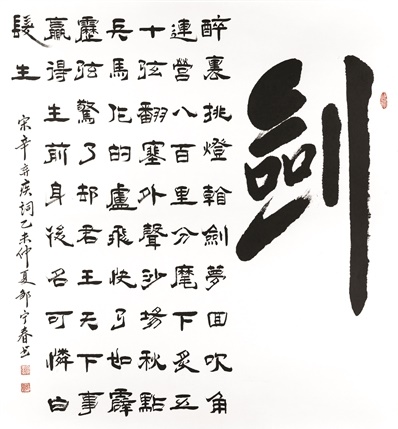 劍
醉裏挑燈看劍夢回吹角
連營八百里分麾下炙五
十弦翻塞外聲沙場秋點
兵馬作的盧飛快弓如霹
靂弦驚了却君王天下事
贏得生前身後名可憐白
髮生
宋辛弃疾詞乙未仲夏宁春书